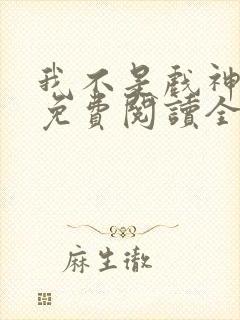 我不是戲神
免費閱讀全
麻生澈